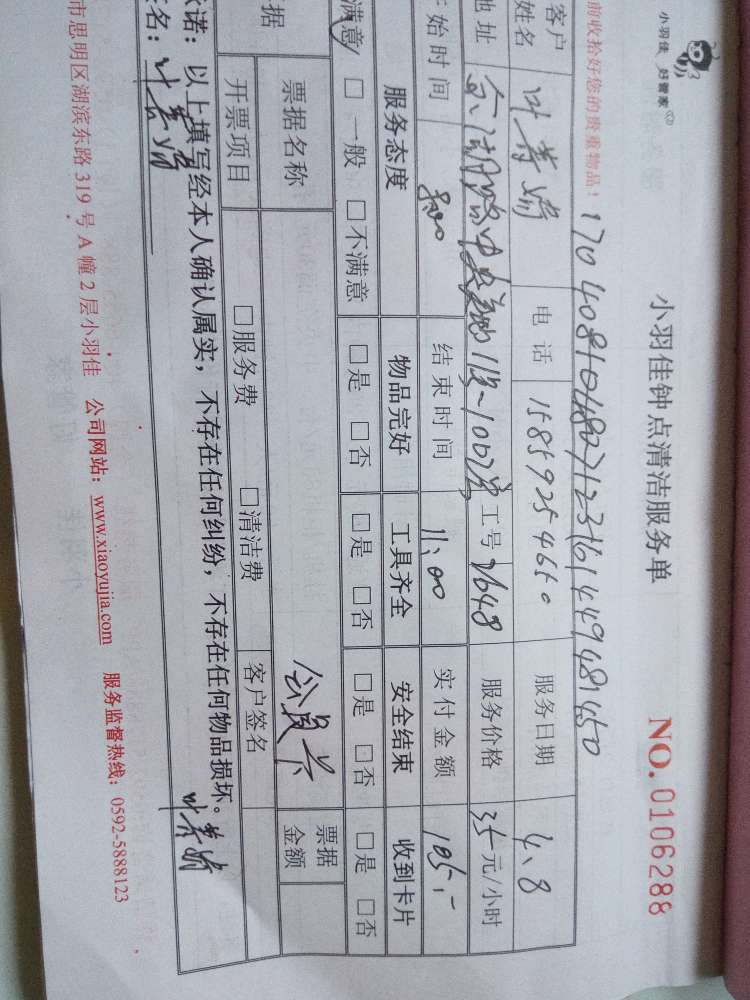 小羽佳 好管家
小羽佳钟点清洁服务单
NO. 0106288
前收拾好您的贵重物品！
客户姓名 电话 15859254650 服务日期 4.8
地址 工号 2648 服务价格 35元/小时
始时间 8:00 结束时间 11:00 实付金额 105.-
服务态度 物品完好 工具齐全 安全结束 收到卡片
满意 □ 一般 □ 不满意 □是 □否 □是 □否 □是 □否 □是 □否
据 票据名称 会员卡 票据金额
开票项目 □服务费 □清洁费 客户签名
诺：以上填写经本人确认属实，不存在任何纠纷，不存在任何物品损坏。
名：
市思明区湖滨东路 319 号 A 幢 2 层小羽佳 公司网站：www.xiaoyujia.com 服务监督热线：0592-5888123